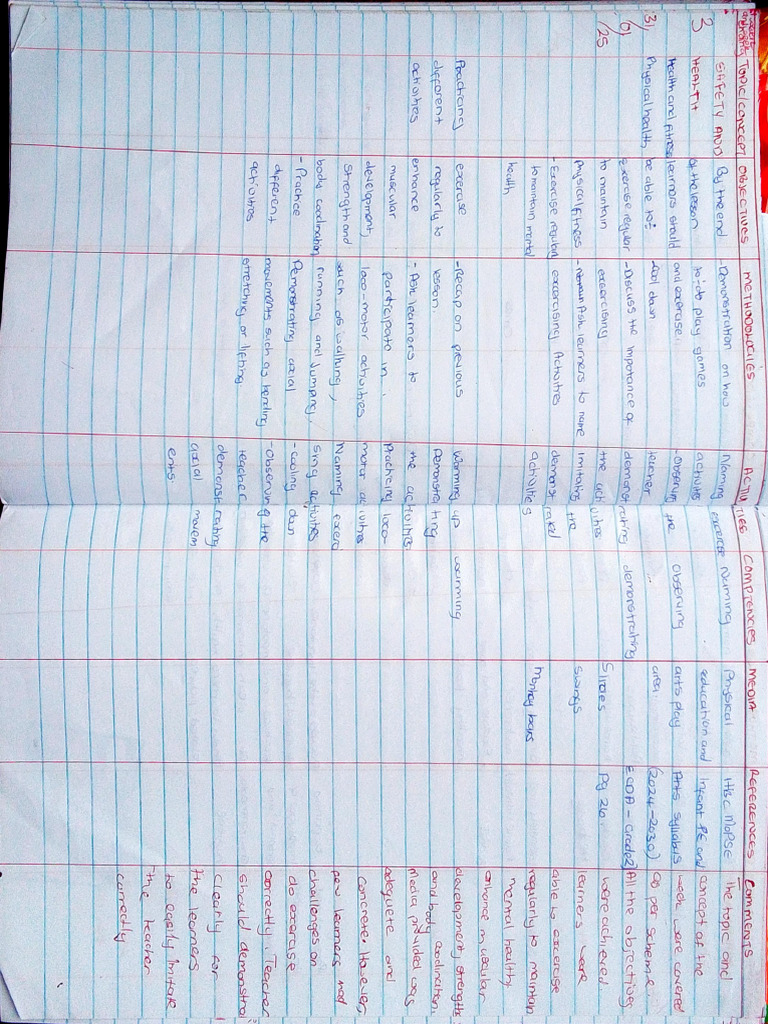 TOPIC/CONCEPT
3
31/
01/
/25
SAFETY AND
HEALTH
Health and fitness
Physical health
Practicing
different
activities
OBJECTIVES
By the end
of the lesson
learners should
be able to:
exercise regular
to maintain
physical fitness
- Exercise regularly
to maintain mental
health
exercise
regularly to
enhance
muscular
development,
strength and
body coordination
- Practice
different
activities
METHODOLOGIES
- Demonstration on how
to do play games
and exercise.
cool down
- Discuss the importance of
exercising
- Ask learners to name
excercising Activities
- Recap on previous
lesson.
- Ask learners to
participate in
loco-motor activities
such as walking,
running and Jumping.
Demonstrating axial
movements such as bending
stretching or lifting.
ACTIVITIES
Naming exercise
activities
Observing the
teacher
demonstrating
the activities
Imitating the
demonstrated
activities
Warming up
Demonstrating
the activities
Practicing loco-
motor activities
Naming exerci
sing activities
- cooling down
- Observing the
teacher
demonstrating
axial movem
ents
COMPTENCIES
Naming
observing
demonstrating
warming
MEDIA
Physical
education and
arts play
area.
Slides
swings
Monkey bars
REFERENCES
HBC MOPSE
Infant PE and
Arts syllabus
(2024-2030)
ECDA - Grade 2
Pg 26
COMMENTS
The topic and
concept of the
week were covered
as per scheme.
All the objectives
were achieved
learners were
able to exercise
regularly to maintain
mental healthy
enhance muscular
development, strength
and body cordination.
Media provided was
adequete and
concrete. However,
few learners had
challenges on
do exercise
correctly. Teacher
should demonstra
clearly for
the learners
to easily imitate
the teacher
correctly